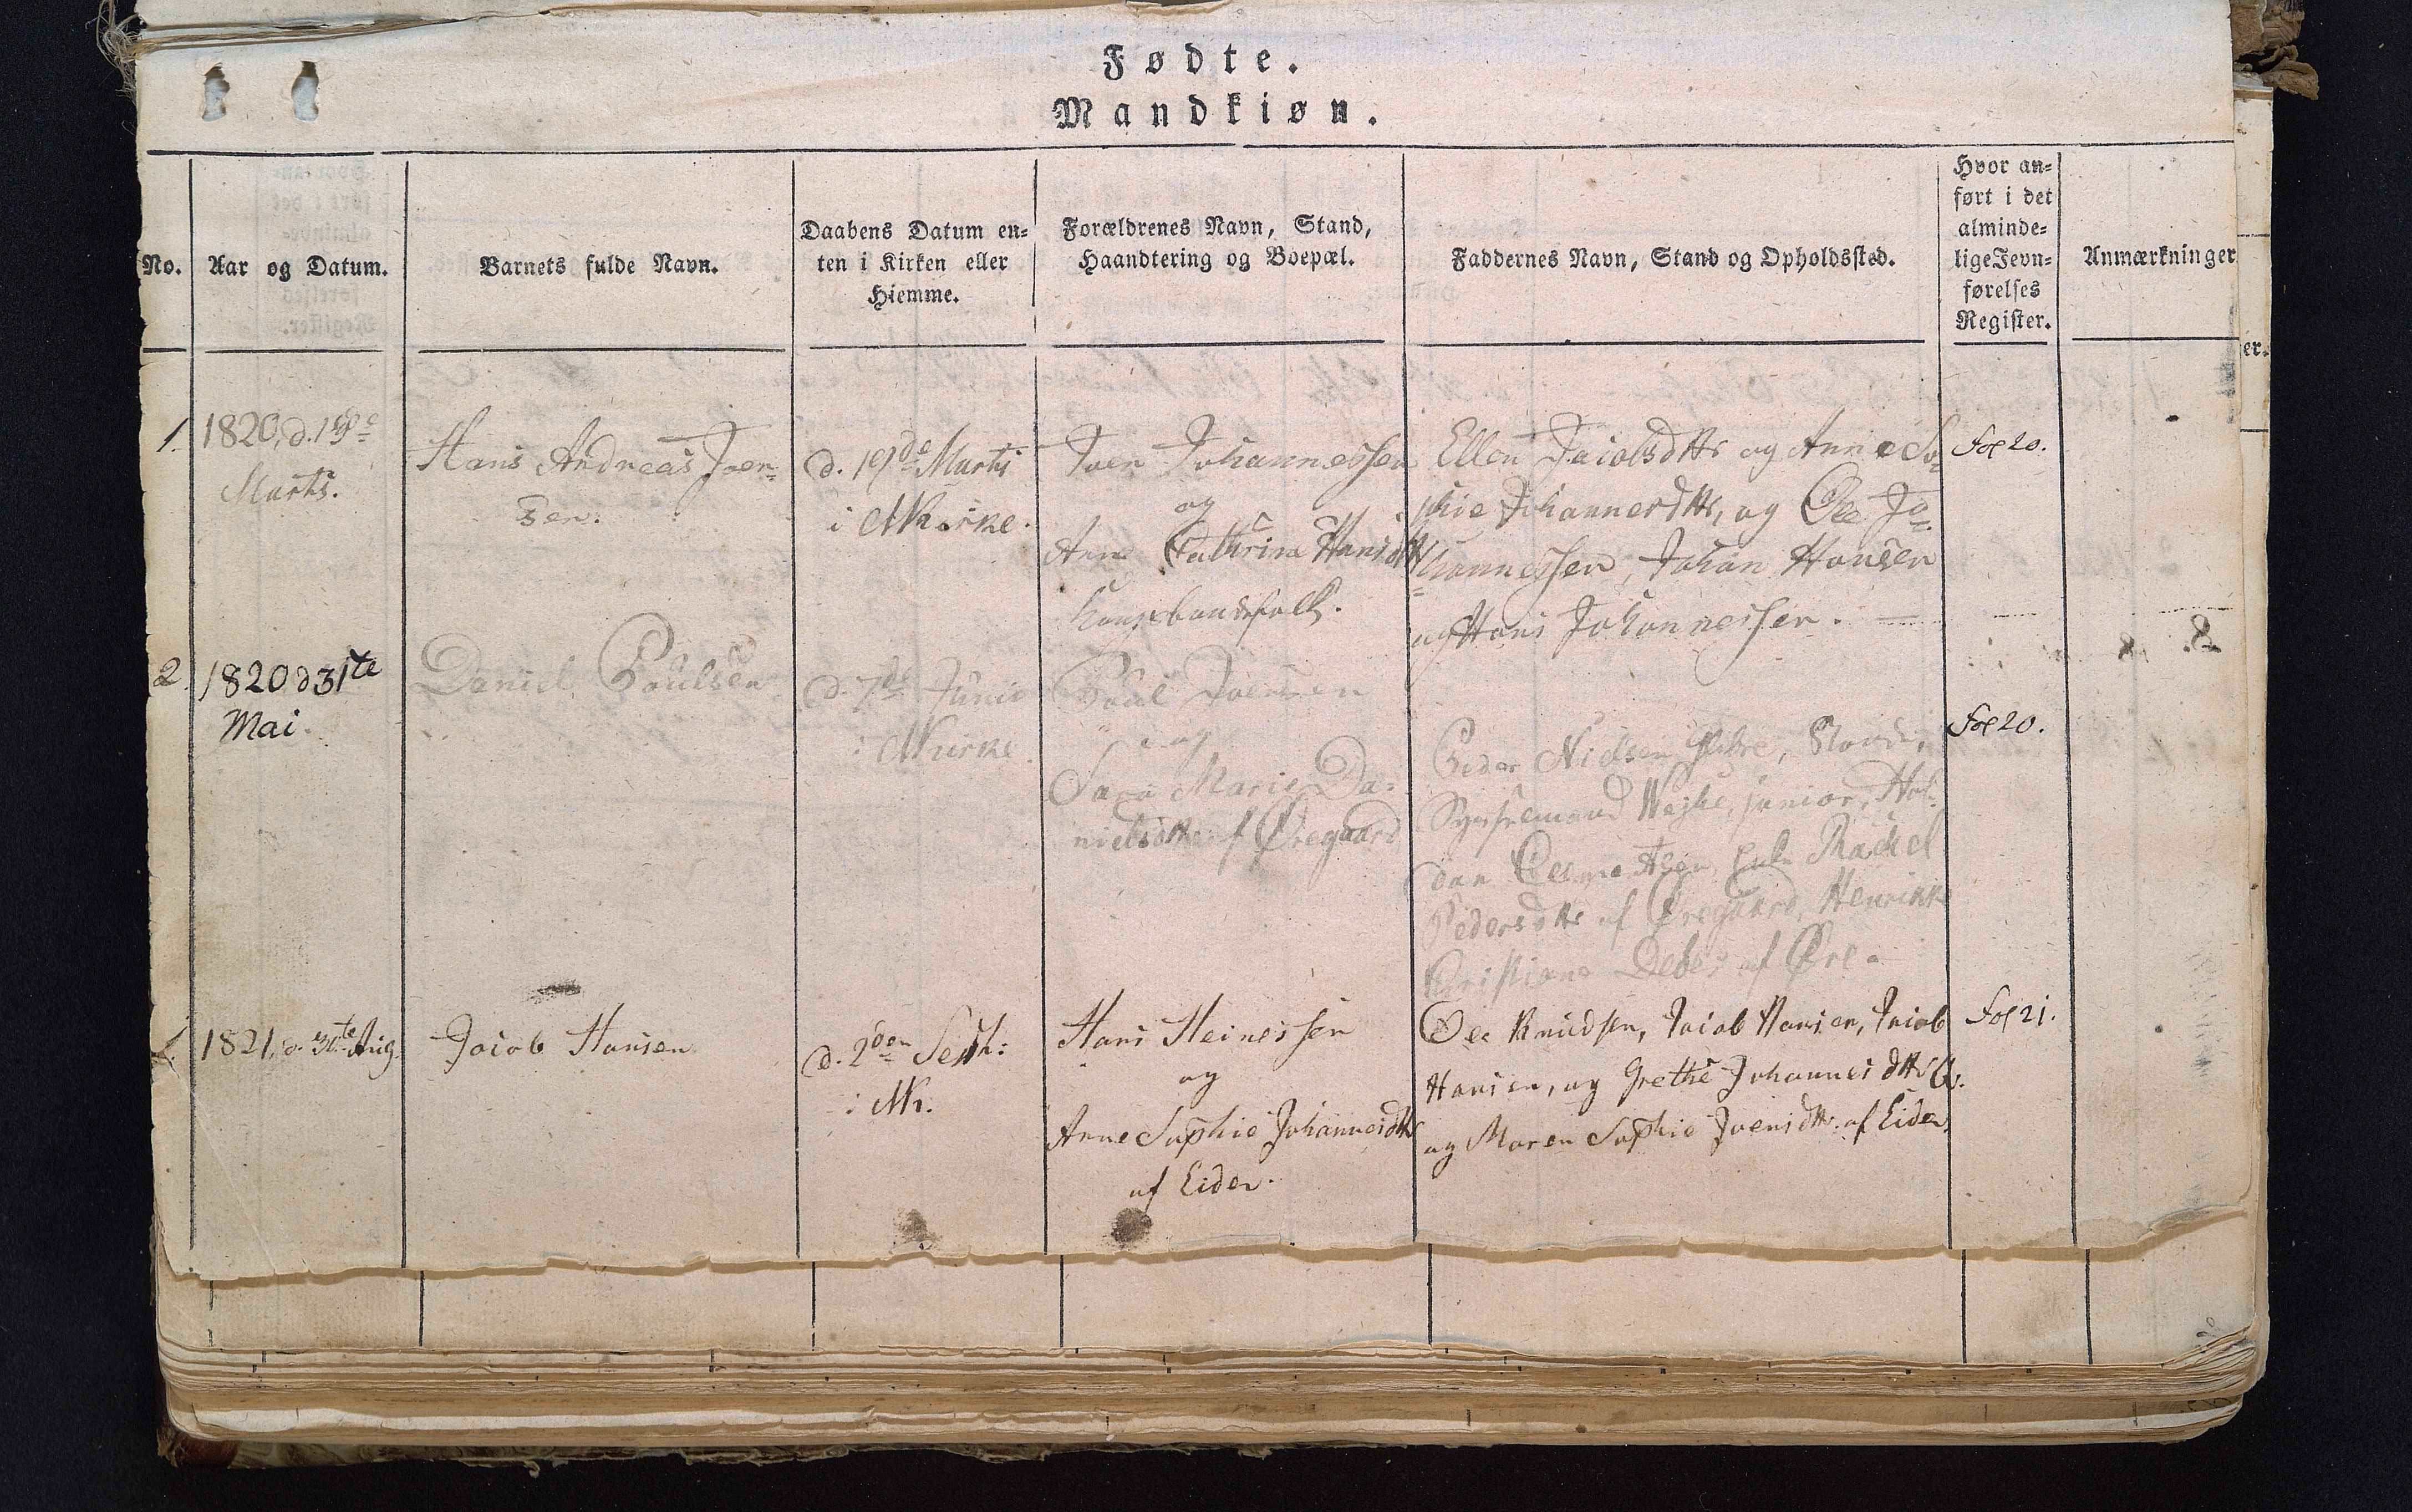 Fødte.
Mandkiøn.
No.
Aar og Datum.
Barnets fulde Navn.
Daabens Datum en-
ten i Kirken eller
Hiemme.
Forældrenes Navn, Stand,
Haandtering og Boepæl.
Faddernes Navn, Stand og Opholdssted.
Hvor an-
ført i det
alminde-
lige Jevn-
førelses
Register.
Anmærkninger
er.
1.
1820, d.
Marts.
Hans Andreas Joen-
sen.
d. 19de Marts
i
Joen Johannessen
og
Ane Cathrina Hansdttr
Ellen Jacobsdttr og Anne So-
phie Johannesdttr, og Ole Jo-
hannessen, Johan Hansen
og Hans Johannessen.
fol 20.
2.
1820 d 31te
Mai.
Daniel Poulsen
d. 7de Junii
i
Poul Joensen
og
Marie Da-
nielsdttr af Øregaard
Peder Nielsen
Sysselmand junior,
dan Rachel
Pedersdttr af Øregaard,
Debes af Øre
fol 20.
1.
1821, d. Aug.
Jacob Hansen
d. 2den Septb:
i
Hans Heinessen
og
Anne Sophie Johannesdttr
af Eider.
Ole Knudsen, Jacob Hansen, Jacob
Hansen, og Grethe Johannesdttr
og Maren Sophie Joensdttr. af Eider.
fol 21.